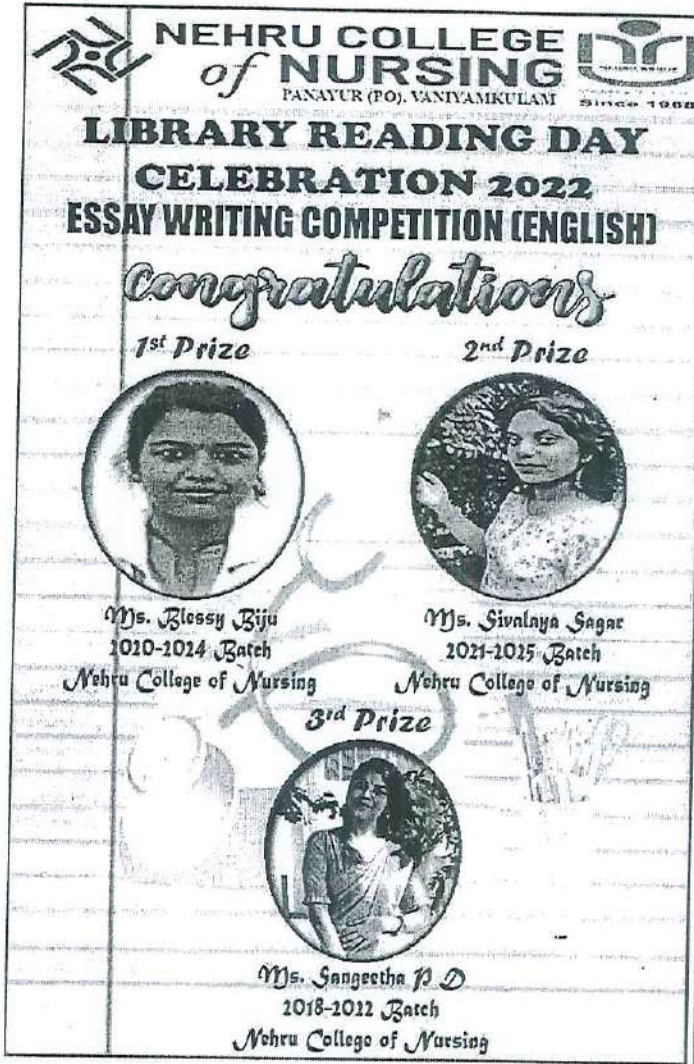 NEHRU COLLEGE
of NURSING
PANAYUR (PO). VANIYAMKULAM
Since 1968
LIBRARY READING DAY
CELEBRATION 2022
ESSAY WRITING COMPETITION (ENGLISH)
Congratulations
1st Prize
2nd Prize
Ms. Blessy Biju
2020-2024 Batch
Nehru College of Nursing
Ms. Sivalaya Sagar
2021-2025 Batch
Nehru College of Nursing
3rd Prize
Ms. Sangeetha P D
2018-2022 Batch
Nehru College of Nursing